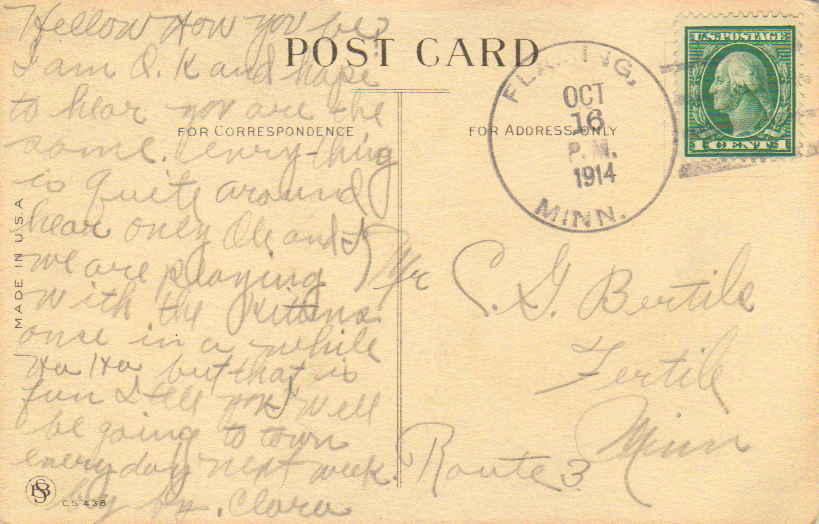 Hellow How you be?
I am O. K and hope
to hear you are the
same. Every-thing
is quite around
hear only Ole and I
we are playing
with the kittens
once in a while
Ha Ha but that is
fun I tell you well
be going to town
everyday next week
by by. Clara
POST CARD
FOR CORRESPONDENCE
FOR ADDRESS ONLY
MADE IN U.S.A
U.S. POSTAGE
1 CENT 1
OCT
16
P.M.
1914
MINN.
Mr C. G. Bertils
Fertile
Minn
Route 3
BS
C.S. 438